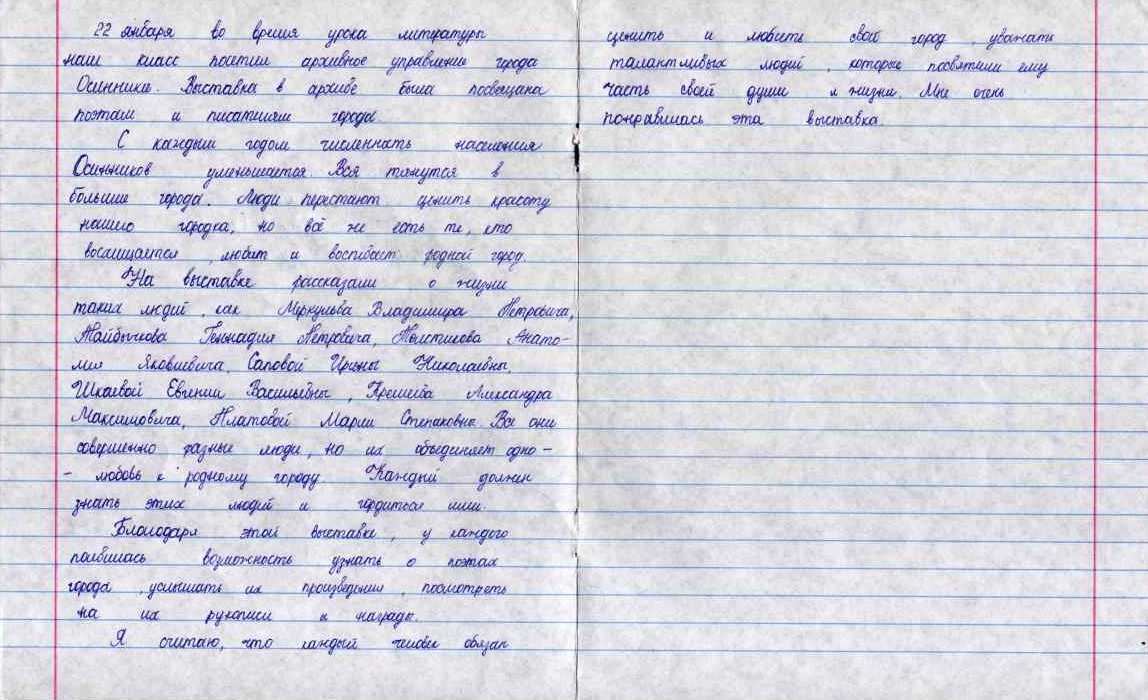 22 января во время урока литературы
наш класс посетил архивное управление города
Осинники. Выставка в архиве была посвящена
поэтам и писателям города.
С каждым годом численность населения
Осинников уменьшается. Все тянутся в
большие города. Люди перестают ценить красоту
нашего городка, но всё же есть те, кто
восхищается, любит и воспевает родной город.
На выставке рассказали о жизни
таких людей, как Меркульва Владимира Петровича,
Геннадия Петровича, Анато-
лия Яковлевича, Саповой Ирины Николаевны,
Шкаевой Евгении Васильевны, Александра
Максимовича, Платовой Марии Степановне. Все они
совершенно разные люди, но их объединяет одно -
- любовь к родному городу. Каждый должен
знать этих людей и гордиться ими.
Благодаря этой выставке, у каждого
появилась возможность узнать о поэтах
города, услышать их произведения, посмотреть
на их рукописи и награды.
Я считаю, что каждый человек обязан
ценить и любить свой город, уважать
талантливых людей, которые посвятили ему
часть своей души и жизни. Мне очень
понравилась эта выставка.